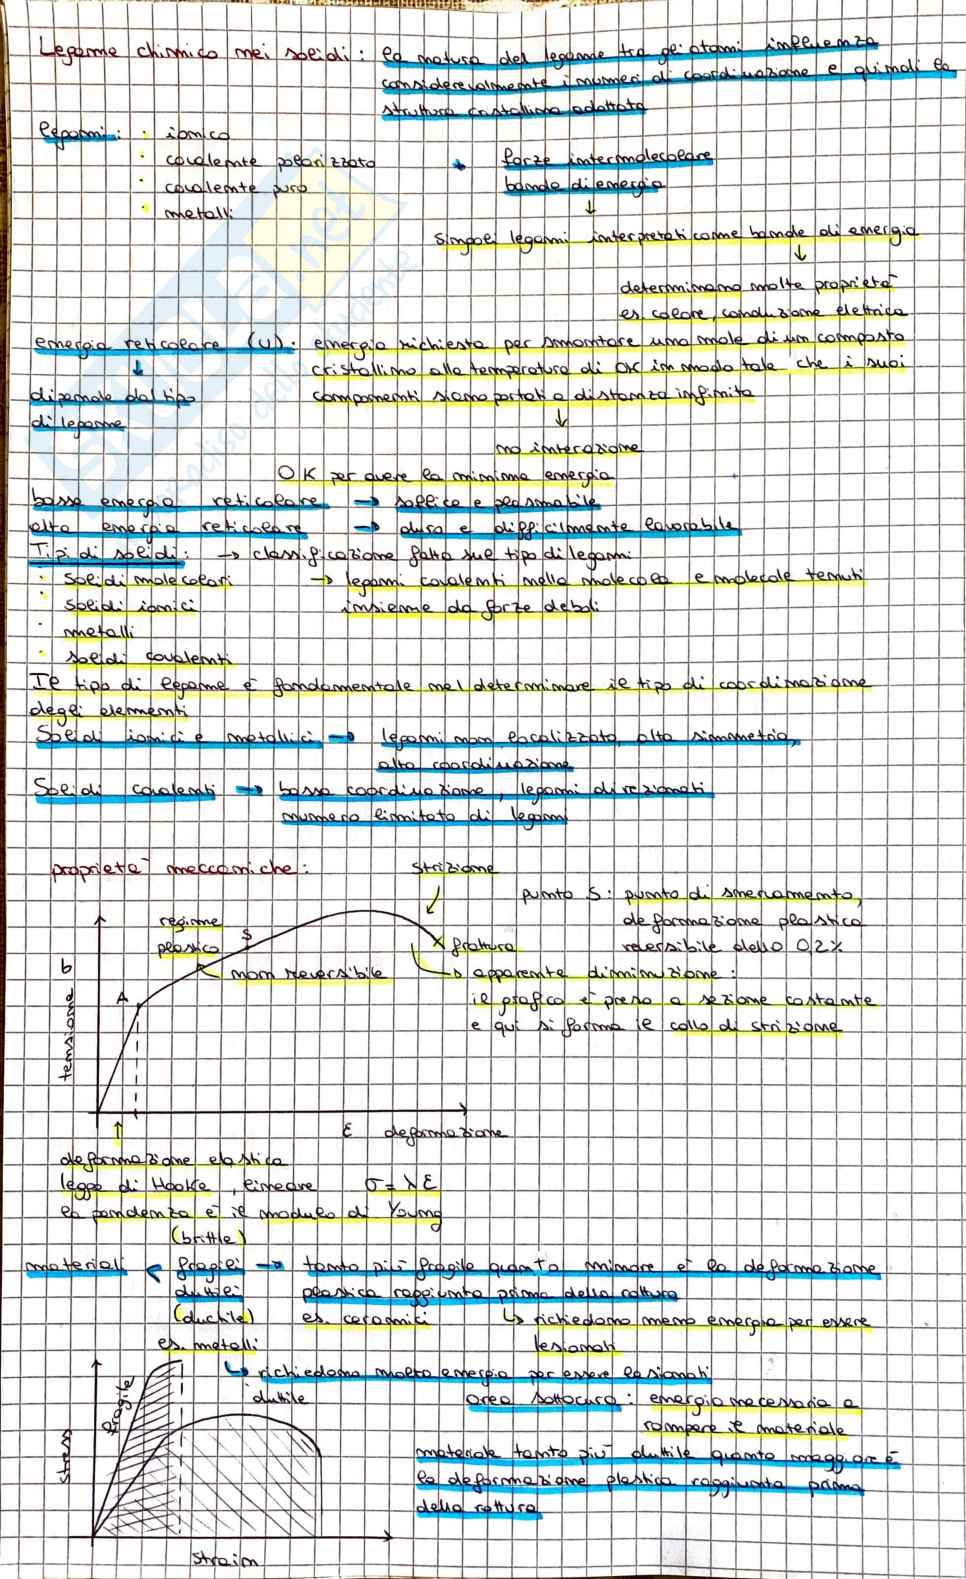 Legame chimico nei solidi: la natura del legame tra gli atomi influenza
considerevolmente i numeri di coordinazione e quindi la
struttura cristallina adottata
legami: · ionico
· covalente polarizzato
· covalente puro
· metalli
forze intermolecolare
bande di energia
↓
singoli legami interpretati come bande di energia
↓
determinano molte proprietà
es. colore, conduzione elettrica
energia reticolare (U): energia richiesta per smontare una mole di un composto
cristallino alla temperatura di 0K in modo tale che i suoi
componenti siano portati a distanza infinita
↓
dipende dal tipo
di legame
↓
no interazione
0K per avere la minima energia
bassa energia reticolare → soffice e plasmabile
alta energia reticolare → duro e difficilmente lavorabile
Tipi di solidi: → classificazione fatta sul tipo di legami
· solidi molecolari → legami covalenti nella molecola e molecole tenuti
insieme da forze deboli
· solidi ionici
· metalli
· solidi covalenti
Il tipo di legame è fondamentale nel determinare il tipo di coordinazione
degli elementi
Solidi ionici e metallici → legami non localizzato, alta simmetria,
alta coordinazione
Solidi covalenti → bassa coordinazione, legami direzionati
numero limitato di legami
proprietà meccaniche:
strizione
punto S: punto di snervamento,
deformazione plastica
reversibile dello 0,2%
regime
plastico
S
non reversibile
A
x frattura
↳ apparente diminuzione:
il grafico è preso a sezione costante
e qui si forma il collo di strizione
tensione σ
ε deformazione
↑
deformazione elastica
legge di Hooke, lineare σ = λ ε
la pendenza è il modulo di Young
(brittle)
materiali < fragili → tanto più fragile quanto minore è la deformazione
plastica raggiunta prima della rottura
duttili
(ductile)
es. ceramici ↳ richiedono meno energia per essere
lesionati
es. metalli
↳ richiedono molta energia per essere lesionati
fragile
duttile
area sottocurva: energia necessaria a
rompere il materiale
materiale tanto più duttile quanto maggiore è
la deformazione plastica raggiunta prima
della rottura
stress
strain
SKUOLA.net